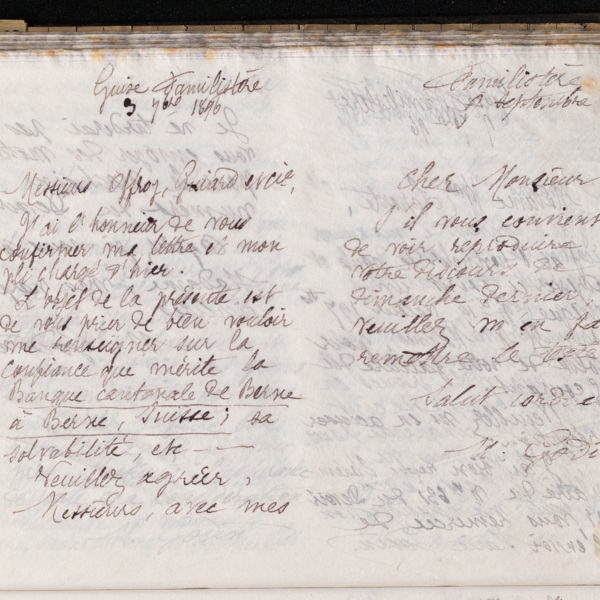 Guise Familistère
3 7bre 1890
Messieurs Offroy, Guiard et Cie,
J'ai l'honneur de vous
confirmer ma lettre et mon
pli chargé d'hier.
L'objet de la présente est
de vous prier de bien vouloir
me renseigner sur la
confiance que mérite la
Banque cantonale de Berne
à Berne, Suisse; sa
solvabilité, etc
Veuillez agréer,
Messieurs, avec mes
Familistère
septembre
Cher Monsieur
S'il vous convient
de voir reproduire
votre discours de
dimanche dernier,
veuillez m'en fa
remettre le texte
Salut cordia